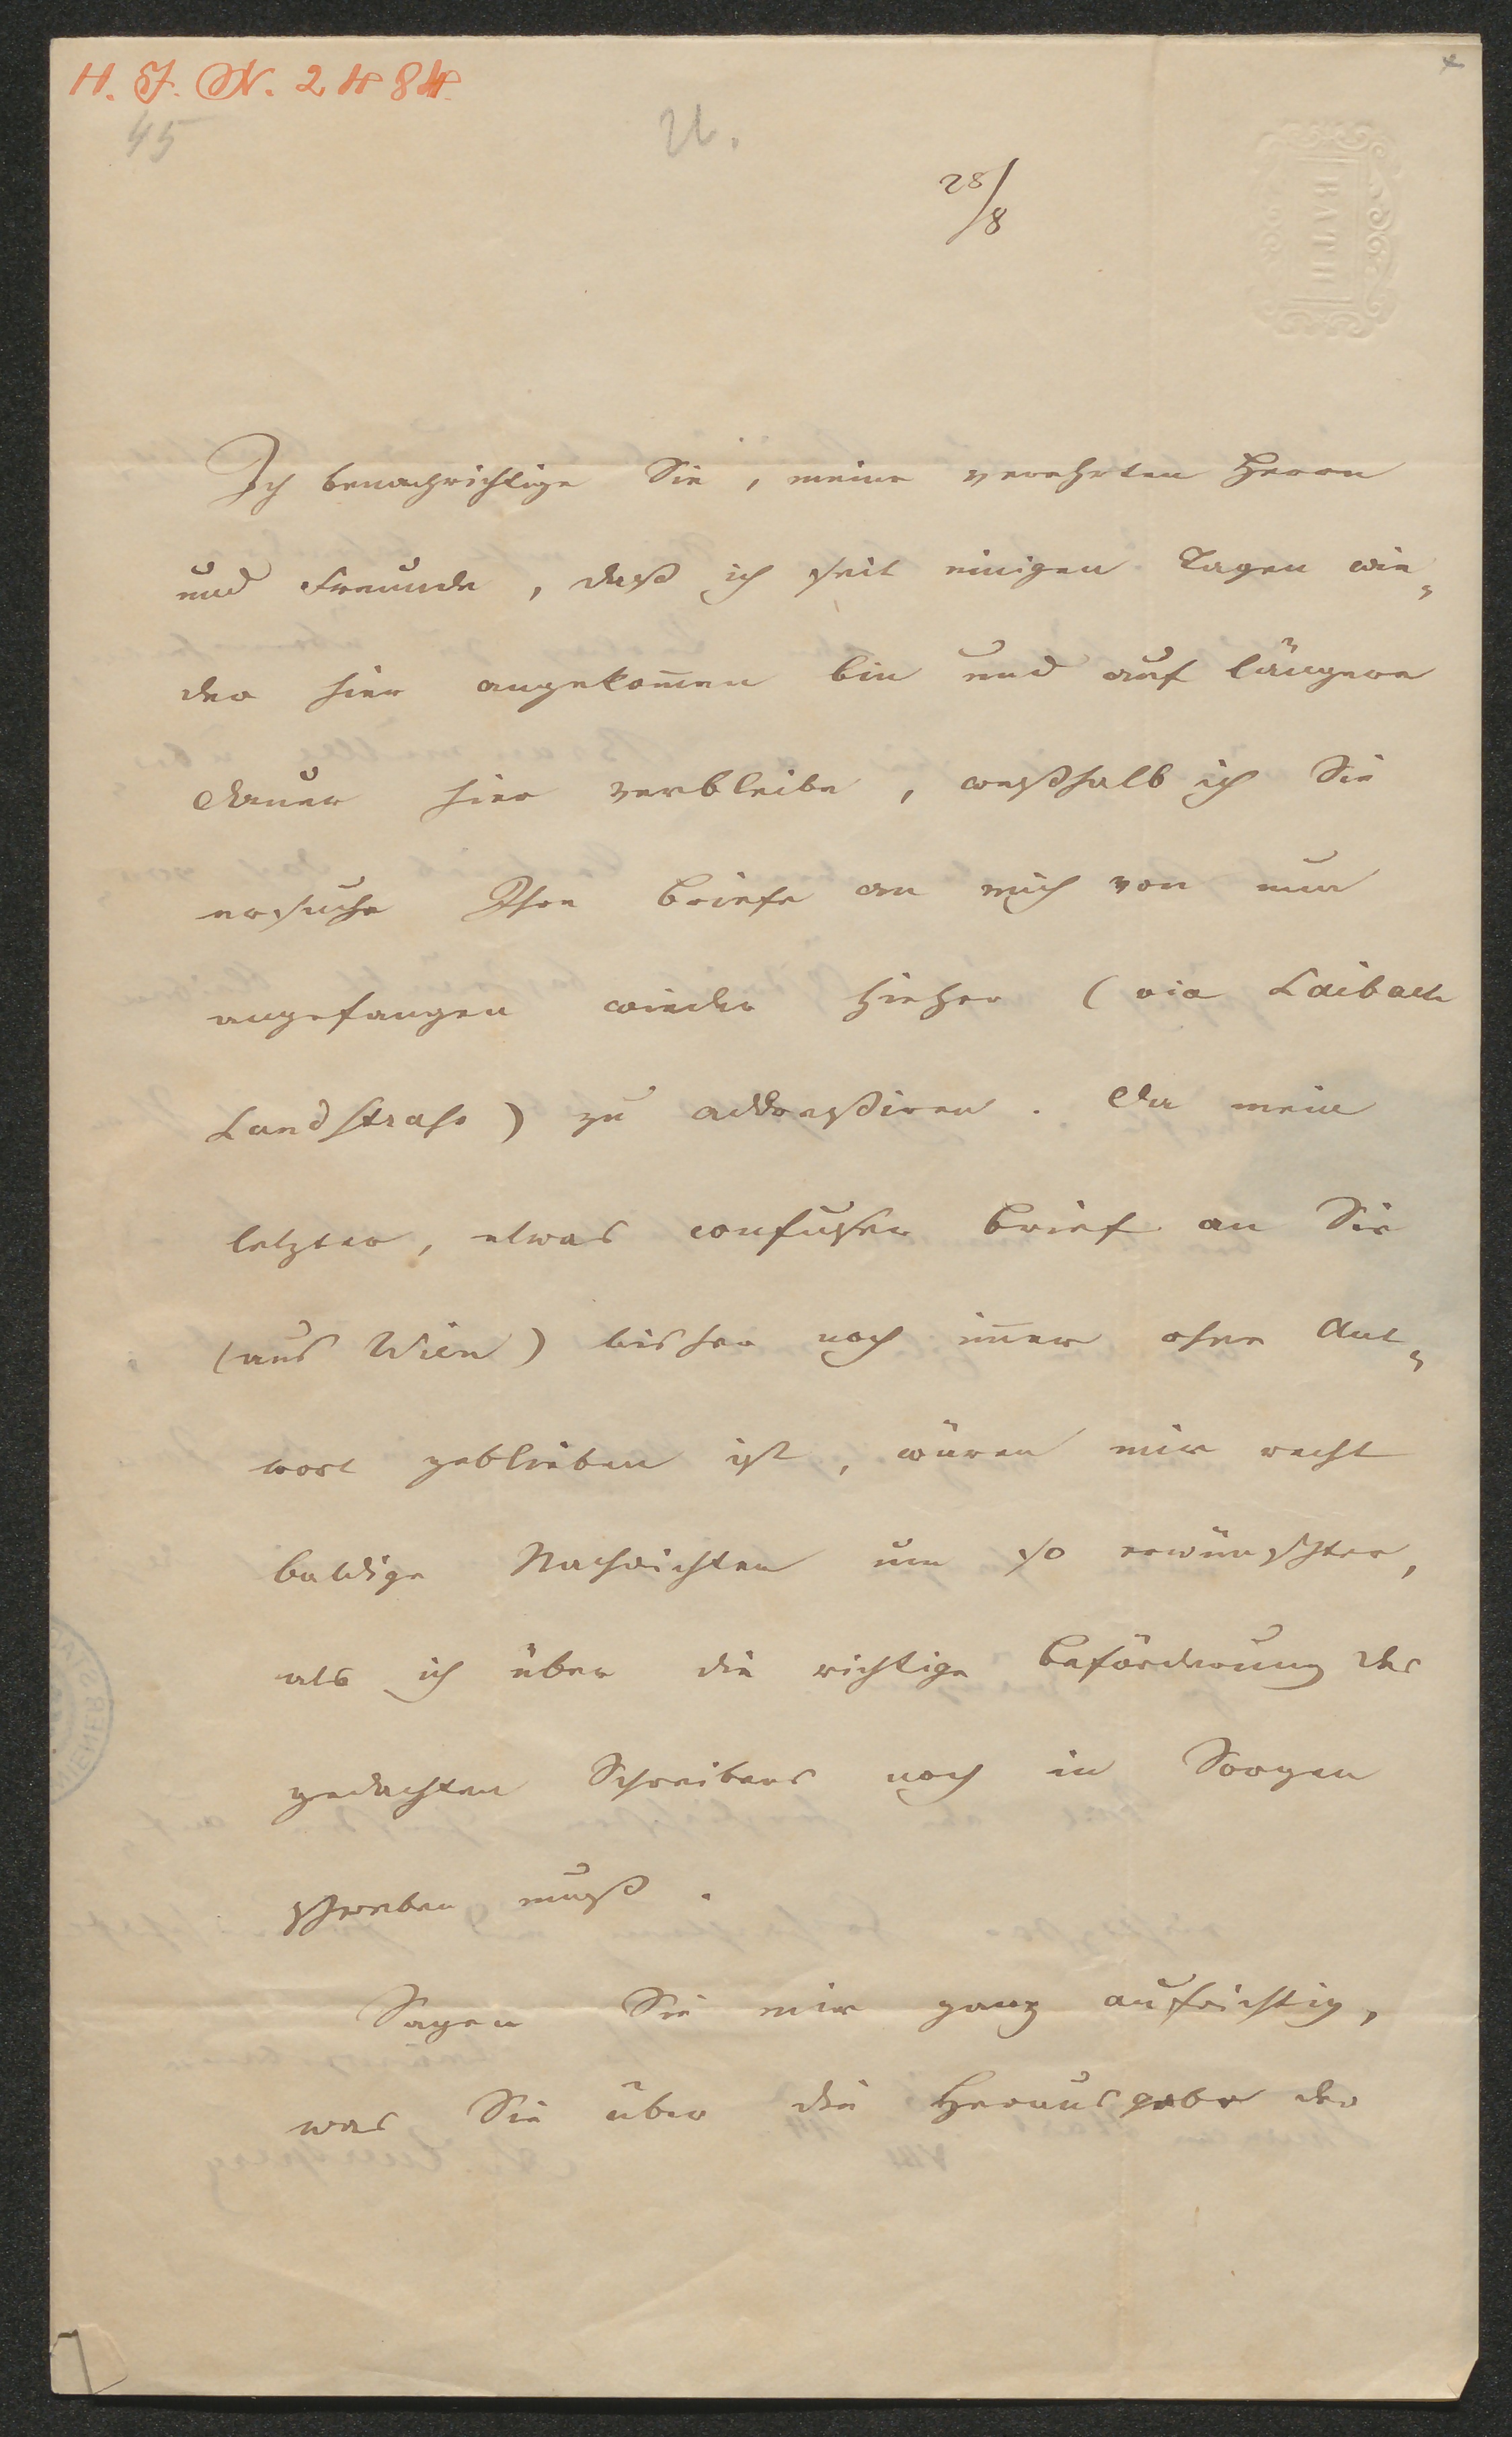 H. I. N. 2484.
45
U.
28/8
BATH
Ich benachrichtige Sie, meine verehrten Herrn
und Freunde, daß ich seit einigen Tagen wie-
der hier angekom̅en bin und auf längere
Dauer hier verbleibe, weßhalb ich Sie
ersuche Ihre Briefe an mich von nun
angefangen wieder hieher (via Laibach
Landstrass) zu addreßiren. Da mein
letzter, etwas confuser Brief an Sie
(aus Wien) bisher noch im̅er ohne Ant-
wort geblieben ist, wären mir recht
baldige Nachrichten um so erwünschter,
als ich über die richtige Beförderung des
gedachten Schreibens noch in Sorgen
schweben muß.
Sagen Sie mir ganz aufrichtig,
was Sie über die Herausgabe der